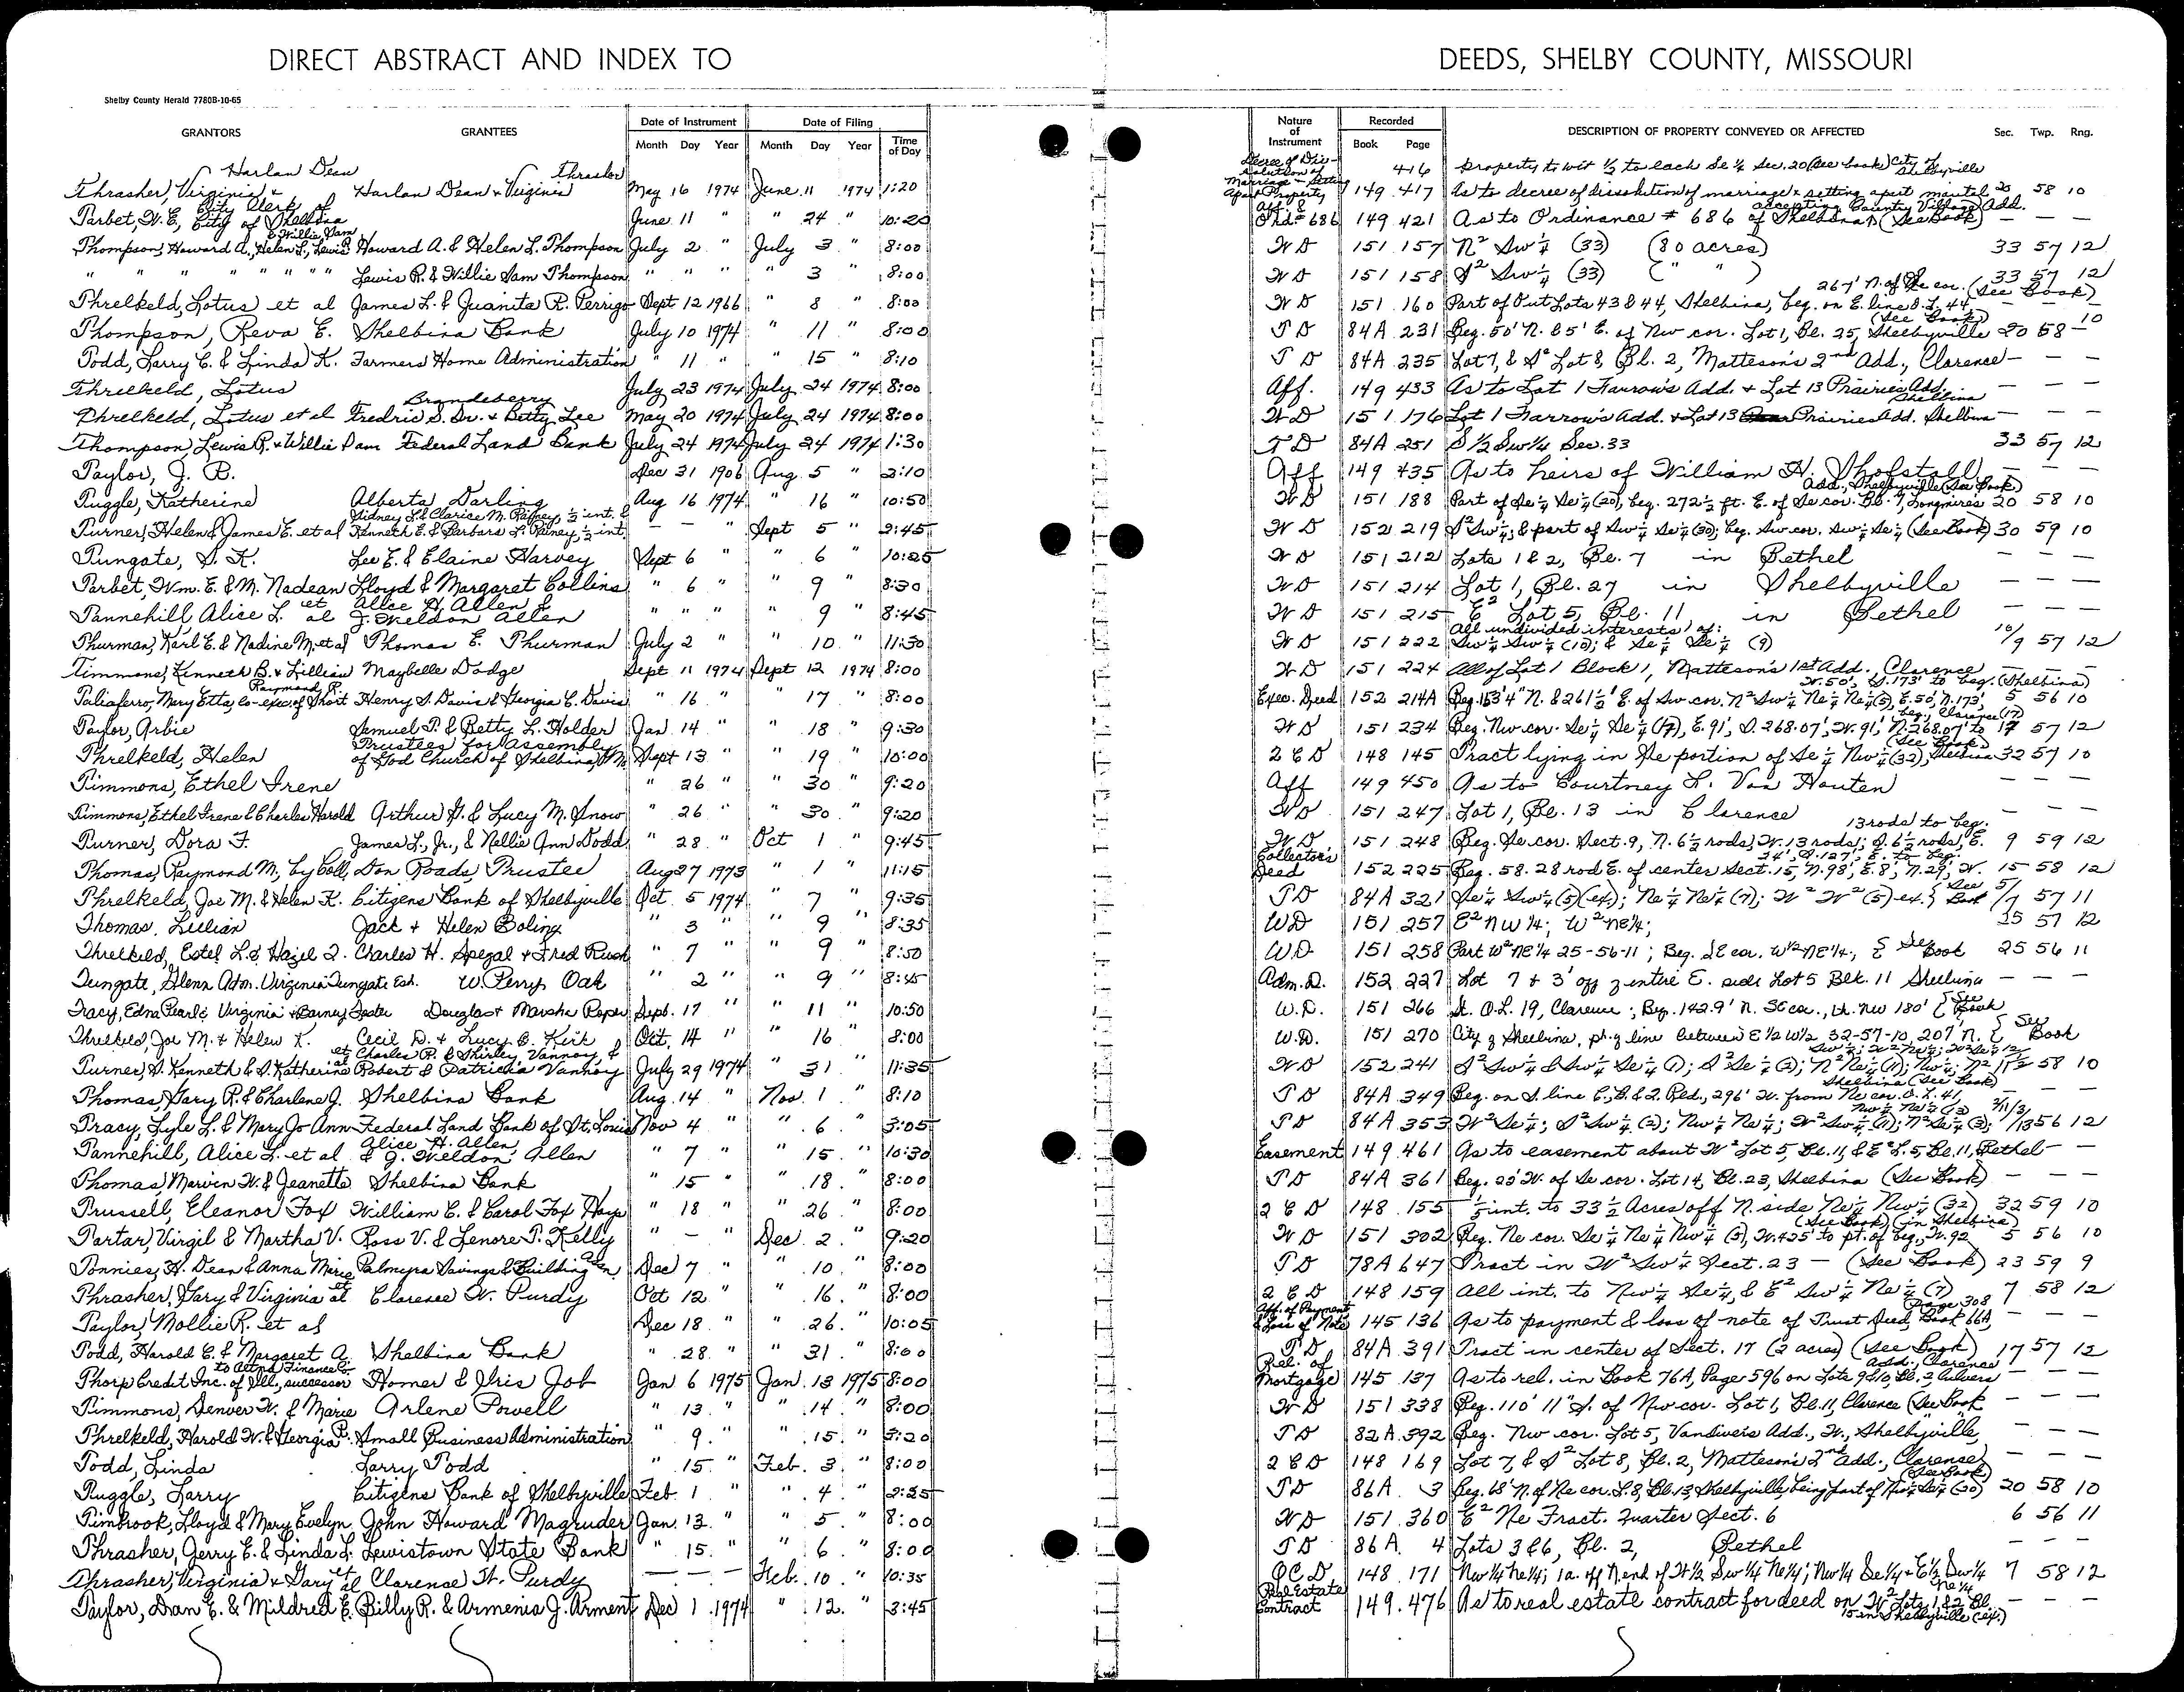 DIRECT ABSTRACT AND INDEX TO DEEDS, SHELBY COUNTY, MISSOURI
Shelby County Herald 7780B-10-65
GRANTORS GRANTEES Date of Instrument Month Day Year Date of Filing Month Day Year Time of Day Nature of Instrument Recorded Book Page DESCRIPTION OF PROPERTY CONVEYED OR AFFECTED Sec. Twp. Rng.
Thrasher, Virginia & Harlan Dean Harlan Dean & Virginia Thrasher May 16 1974 June 11 1974 1:20 Decree of Dissolution of Marriage - Setting Apart Property 149 416 417 property to wit 1/2 to each Se 1/4 Sec. 20 (See book) City of Shelbyville As to decree of dissolution of marriage & setting apart marital 20 58 10
Tarbet, W. E, City Clerk of City of Shelbina June 11 " " 24 " 10:20 Aff. & Ord. # 686 149 421 As to Ordinance # 686 of Shelbina accepting Country Village Add. (See Book) — — —
Thompson, Howard A., Helen L., Lewis R. & Willie Sam Howard A. & Helen L. Thompson July 2 " July 3 " 8:00 W D 151 157 N² Sw 1/4 (33) (80 acres) 33 57 12
" " " " " " " Lewis R. & Willie Sam Thompson " " " " 3 " 8:00 W D 151 158 S² Sw 1/4 (33) ( " " ) 33 57 12
Threlkeld, Lotus et al James L. & Juanita R. Perrigo Sept 12 1966 " 8 " 8:00 W D 151 160 Part of Out Lots 43 & 44, Shelbina, beg. on E. line O.L. 44 267' N. of Se cor. (See Book) — — —
Thompson, Reva E. Shelbina Bank July 10 1974 " 11 " 8:00 T D 84A 231 Beg. 50' N. & 5' E. of Nw cor. Lot 1, Bl. 25, Shelbyville (See Book) 20 58 10
Todd, Larry C. & Linda K. Farmers Home Administration " 11 " " 15 " 8:10 T D 84A 235 Lot 7, & S² Lot 8, Bl. 2, Matteson's 2nd Add., Clarence — — —
Threlkeld, Lotus July 23 1974 July 24 1974 8:00 Aff. 149 433 As to Lot 1 Farrow's Add. & Lot 13 Prairies Add. Shelbina — — —
Threlkeld, Lotus et al Fredric S. Dr. & Betty Lee Brandeberry May 20 1974 July 24 1974 8:00 W D 151 176 Lot 1 Farrow's Add. & Lot 13 Prairies Add. Shelbina — — —
Thompson, Lewis R. & Willie Sam Federal Land Bank July 24 1974 July 24 1974 1:30 T D 84A 251 S 1/2 Sw 1/4 Sec. 33 33 57 12
Taylor, J. B. Dec 31 1906 Aug. 5 " 2:10 Aff 149 435 As to heirs of William H. Shofstall — — —
Tuggle, Katherine Alberta Darling Aug 16 1974 " 16 " 10:50 W D 151 188 Part of Se 1/4 Se 1/4 (20), beg. 272 1/2 ft. E. of Se cor. Bl. 7, Longmire's Add., Shelbyville (See Book) 20 58 10
Turner, Helen & James E. et al Sidney L. & Clarice M. Rainey, 1/2 int. & Kenneth E. & Barbara L. Rainey, 1/2 int. — — " Sept 5 " 2:45 W D 152 219 S² Sw 1/4, & part of Sw 1/4 Se 1/4 (30); beg. Sw cor. Sw 1/4 Se 1/4 (See Book) 30 59 10
Tungate, S. K. Lee E. & Elaine Harvey Sept 6 " " 6 " 10:25 W D 151 212 Lots 1 & 2, Bl. 7 in Bethel — — —
Tarbet, Wm. E. & M. Nadean Lloyd & Margaret Collins " 6 " " 9 " 8:30 W D 151 214 Lot 1, Bl. 27 in Shelbyville — — —
Tannehill Alice L. et al Alice H. Allen & J. Weldon Allen " " " " 9 " 8:45 W D 151 215 E² Lot 5, Bl. 11 in Bethel — — —
Thurman, Karl E. & Nadine M. et al Thomas E. Thurman July 2 " " 10 " 11:30 W D 151 222 All undivided interests of: Sw 1/4 Sw 1/4 (10); & Se 1/4 Se 1/4 (9) 10/9 57 12
Timmons, Kenneth B. & Lillian Maybelle Dodge Sept 11 1974 Sept 12 1974 8:00 W D 151 224 All of Lot 1 Block 1, Matteson's 1st Add., Clarence — — —
Taliaferro, Mary Etta, co-exec. of Raymond P. Short Henry S. Davis & Georgia C. Davis " 16 " 17 " 8:00 Exec. Deed 152 214A Beg. 153'4" N. & 261 1/2' E. of Sw cor. N² Sw 1/4 Ne 1/4 Ne 1/4 (5), E. 50', N. 173', W. 50', S. 173' to beg. (Shelbina) 5 56 10
Taylor, Arbie Samuel T. & Betty L. Holder Jan. 14 " " 18 " 9:30 W D 151 234 Beg. Nw cor. Se 1/4 Se 1/4 (17), E. 91', S. 268.07', W. 91', N. 268.07' to beg., Clarence (17) 17 57 12
Threlkeld, Helen Trustees for Assembly of God Church of Shelbina, Mo Sept 13 " " 19 " 10:00 2 C D 148 145 Tract lying in Se portion of Se 1/4 Nw 1/4 (32), Shelbina (See Book) 32 57 10
Timmons, Ethel Irene " 26 " " 30 " 9:20 Aff 149 450 As to Courtney L. Van Houten — — —
Timmons, Ethel Irene & Charles Harold Arthur G. & Lucy M. Snow " 26 " 30 " 9:20 W D 151 247 Lot 1, Bl. 13 in Clarence — — —
Turner, Dora F. James L., Jr., & Nellie Ann Dodd " 28 " Oct 1 " 9:45 W D 151 248 Beg. Se cor. Sect. 9, N. 6 1/2 rods, W. 13 rods; S. 6 1/2 rods, E. 13 rods to beg. 9 59 12
Thomas, Raymond M., by Coll. Don Roads, Trustee Aug 27 1973 " 1 " 11:15 Collector's Deed 152 225 Beg. 58.28 rods E. of center Sect. 15, N. 98', E. 8', N. 29', W. 24', S. 127', E. to beg. 15 58 12
Threlkeld, Joe M. & Helen K. Citizens Bank of Shelbyville Oct. 5 1974 " 7 " 9:35 T D 84A 321 Se 1/4 Sw 1/4 (5) (ex); Ne 1/4 Ne 1/4 (7); W² W² (5)-ex. { See Book 5/7 57 11
Thomas, Lillian Jack & Helen Boling " 3 " " 9 " 8:35 WD 151 257 E² NW 1/4; W² NE 1/4; 35 57 12
Threlkeld, Estel L. & Hazel I. Charles H. Spegal & Fred Rusk " 7 " 9 " 8:50 W.D. 151 258 Part W² NE 1/4 25-56-11; Beg. SE cor. W 1/2 NE 1/4, { See Book 25 56 11
Tungate, Glenn Adm. Virginia Tungate Est. W. Perry Oak " 2 " " 9 " 8:45 Adm. D. 152 227 Lot 7 & 3' off entire E. side Lot 5 Blk. 11 Shelbina — — —
Tracy, Edna Pearl & Virginia & Barney Foster Douglas & Marsha Roper Sept. 17 " " 11 " 10:50 W.D. 151 266 Pt. O.L. 19, Clarence; Beg. 142.9' N. SE cor., th. NW 180' { See Book
Threlkeld, Joe M. & Helen K. Cecil D. & Lucy B. Kirk Oct. 14 " " 16 " 8:00 W.D. 151 270 City of Shelbina, pt. of line between E 1/2 W 1/2 32-57-10, 207' N. { See Book
Turner, S. Kenneth & S. Katherine et al Charles R. & Shirley Vannoy, & Robert & Patricia Vannoy July 29 1974 " 31 " 11:35 W D 152 241 S² Sw 1/4 & Sw 1/4 Se 1/4 (1); S² Se 1/4 (2); N² Ne 1/4 (11); Nw 1/4; N² Sw 1/4; W² Ne 1/4; 58 10
Thomas, Gary R. & Charlene J. Shelbina Bank Aug. 14 " Nov. 1 " 8:10 T D 84A 349 Beg. on S. line C., B. & Q. Rd., 296' W. from Ne cor. O.L. 41, Shelbina (See Book) — — —
Tracy, Lyle L. & Mary Jo Ann Federal Land Bank of St. Louis Nov 4 " " 6 " 3:05 T D 84A 353 W² Se 1/4; S² Sw 1/4 (2); Nw 1/4 Ne 1/4; W² Sw 1/4 (1); N² Se 1/4 (3); Nw 1/4 Ne 1/4 (12) 56 12
Tannehill, Alice L. et al Alice H. Allen & J. Weldon Allen " 7 " " 15 " 10:30 Easement 149 461 As to easement about W² Lot 5, Bl. 11, & E² L. 5, Bl. 11, Bethel — —
Thomas, Marvin W. & Jeanette Shelbina Bank " 15 " " 18 " 8:00 T D 84A 361 Beg. 23' W. of Se cor. Lot 14, Bl. 23, Shelbina (See Book) — — —
Trussell, Eleanor Fox William C. & Carol Fox Hays " 18 " " 26 " 8:00 2 C D 148 155 1/5 int. to 33 1/2 Acres off N. side Ne 1/4 Nw 1/4 (32) 32 59 10
Tartar, Virgil & Martha V. Ross V. & Lenore T. Kelly " — " Dec. 2 " 9:20 W D 151 302 Beg. Ne cor. Se 1/4 Ne 1/4 Nw 1/4 (5), W. 425' to pt. of beg., W. 92 (See Book) (in Shelbina) 5 56 10
Tonnies, H. Dean & Anna Marie Palmyra Savings & Building Assn. Dec 7 " " 10 " 8:00 T D 78A 647 Tract in W² Sw 1/4 Sect. 23 — (See Book) 23 59 9
Thrasher, Gary & Virginia et al Clarence W. Purdy Oct 12 " " 16 " 8:00 2 C D 148 159 All int. to Nw 1/4 Se 1/4, & E² Sw 1/4 Ne 1/4 (7) 7 58 12
Taylor, Mollie R. et al Dec 18 " " 26 " 10:05 Aff. of Payment & Loss of Note 145 136 As to payment & loss of note of Trust Deed, Book 66A, Page 308 — —
Todd, Harold C. & Margaret A. Shelbina Bank " 28 " " 31 " 8:00 T D 84A 391 Tract in center of Sect. 17 (2 acres) (See Book) 17 57 12
Thorp Credit Inc. of Ill., successor to Aetna Finance Co. Homer & Iris Job Jan 6 1975 Jan. 13 1975 8:00 Rel. of Mortgage 145 137 As to rel. in Book 76A, Page 596 on Lots 9 & 10, Bl. 2, Culvers Add., Clarence — — —
Timmons, Denver W. & Marie Arlene Powell " 13 " " 14 " 8:00 W D 151 338 Beg. 110' 11" S. of Nw cor. Lot 1, Bl. 11, Clarence (See Book — — —
Threlkeld, Harold W. & Georgia P. Small Business Administration " 9 " " 15 " 3:20 T D 82A 392 Beg. Nw cor. Lot 5, Vandiver's Add., W., Shelbyville, — — —
Todd, Linda Larry Todd " 15 " Feb. 3 " 8:00 2 C D 148 169 Lot 7, & S² Lot 8, Bl. 2, Matteson's 2nd Add., Clarence — — —
Tuggle, Larry Citizens Bank of Shelbyville Feb. 1 " " 4 " 2:25 T D 86A 3 Beg. 68' N. of Ne cor. L. 8, Bl. 13, Shelbyville, being part of Nw 1/4 Se 1/4 (20) (See Book) 20 58 10
Timbrook, Lloyd & Mary Evelyn John Howard Magruder Jan. 13 " " 5 " 8:00 W D 151 360 E² Ne Fract. Quarter Sect. 6 6 56 11
Thrasher, Jerry E. & Linda L. Lewistown State Bank " 15 " " 6 " 8:00 T D 86A 4 Lots 3 & 6, Bl. 2, Bethel — — —
Thrasher, Virginia & Gary et al Clarence W. Purdy — — — Feb. 10 " 10:35 QCD 148 171 Nw 1/4 Ne 1/4; 1a. off N. end of W 1/2 Sw 1/4 Ne 1/4; Nw 1/4 Se 1/4 & E 1/2 Sw 1/4 Ne 1/4 7 58 12
Taylor, Dan E. & Mildred E. Billy R. & Armenia J. Arment Dec 1 1974 " 12 " 3:45 Real Estate Contract 149 476 As to real estate contract for deed on W² Lots 1 & 2 Bl. 15 in Shelbyville (ex.) — — —